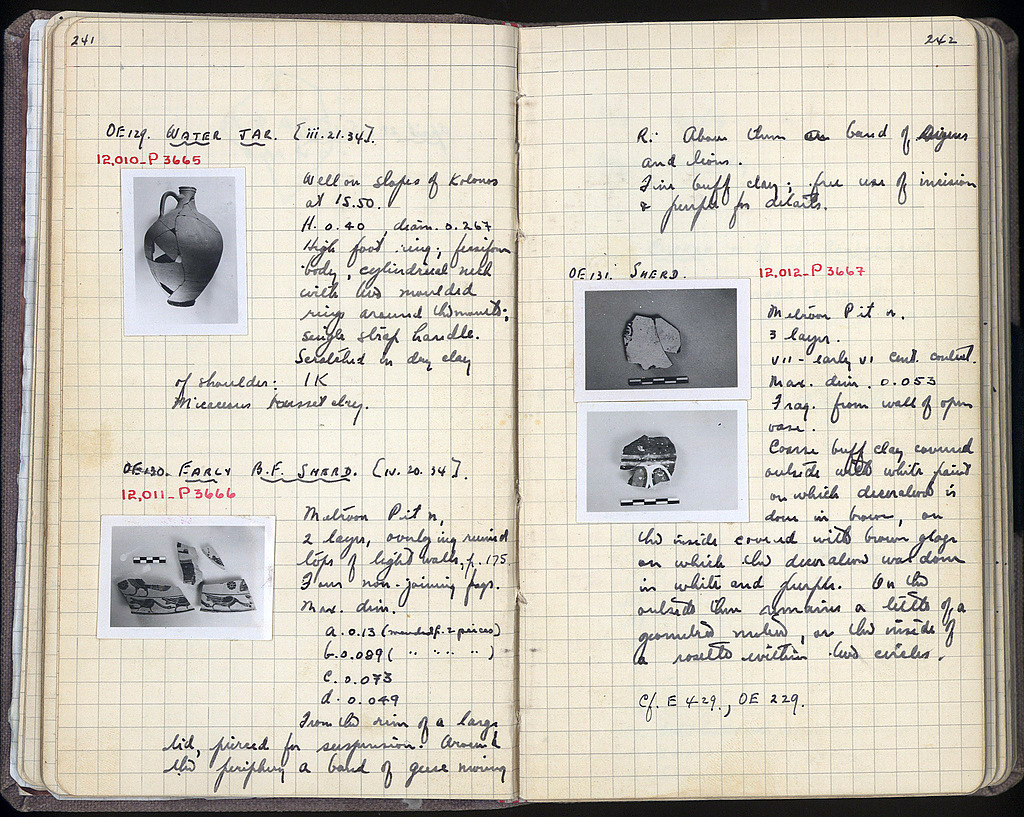 241
OE129. WATER JAR. [iii.21.34].
12,010-P 3665
Well on slopes of Kolonos
at 15.50.
H. 0.40, diam. 0.267
High foot ring; fusiform
body, cylindrical neck
with two moulded
rings around the mouth;
single strap handle.
Scratched in dry clay
of shoulder: IK
Micaceous russet clay.
OE130. EARLY B.F. SHERD. [iv.20.34].
12,011-P 3666
Metroon Pit n,
2 layer, overlying ruined
tops of light walls, p. 175
Four non-joining frgs.
Max. dim.
a. 0.13 (mended f. 2 pieces)
b. 0.089 ( " " " " )
c. 0.073
d. 0.049
From the rim of a large
lid, pierced for suspension. Around
the periphery a band of geese moving
242
R: Above them a band of
and lions.
Fine buff clay; free use of incision
& purple for details.
OE131. SHERD.
12,012-P 3667
Metroon Pit n,
3 layer.
VII - early VI cent. context.
Max. dim. 0.053
Frag. from wall of open
vase.
Coarse buff clay covered
outside with white paint
on which decoration is
done in brown, on
the inside covered with brown glaze
on which the decoration was done
in white and purple. On the
outside there remains a little of a
geometric motive, on the inside of
a rosette within two circles.
Cf. E 429., OE 229.